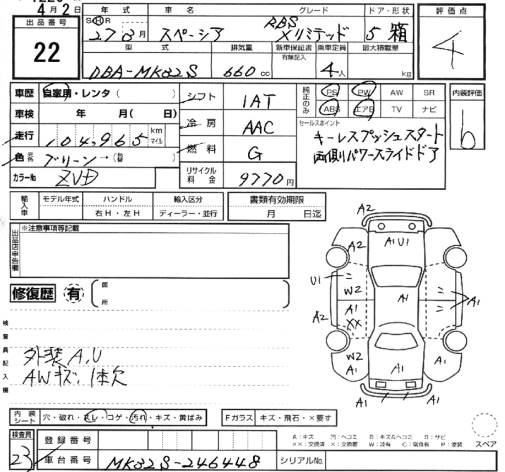 4月2日
出品番号
22
年式 車名 グレード ドア・形状 評価点
27年 月 スペーシア RBS Xリミテッド 5 箱
4
型式 排気量 新車保証書 乗車定員 最大積載量
有無記入
DBA-MK32S 660cc 4人 kg
車歴 自家用・レンタ( )
シフト 1AT
純正のみ PS PW AW SR
ABS エアB TV ナビ
内装評価
b
車検 年 月( 日)
冷房 AAC
セールスポイント
キーレスプッシュスタート
両側パワースライドドア
走行 104,965 km マイル
燃料 G
色 元色 グリーン→(替)
カラーNo ZVD
リサイクル料金 9770円
輸入車 モデル年式 ハンドル 輸入区分
右H・左H ディーラー・並行
書類有効期限
月 日迄
出品店申告欄
※注意事項等記載
修復歴 有 箇所
検査員記入欄
外装A,U
AWキズ,1体欠
A2
A2
A1U1
U1
W2
A1
A1
A1
A1
A2
A1
XX
W2
A1
A2
A1
A1
A1
内装シート 穴・破れ・よし・コゲ・汚れ・キズ・黄ばみ
Fガラス キズ・飛石・×要す
スペア
検査員
23
登録番号
車台番号 MK32S-246448 シリアルNo.